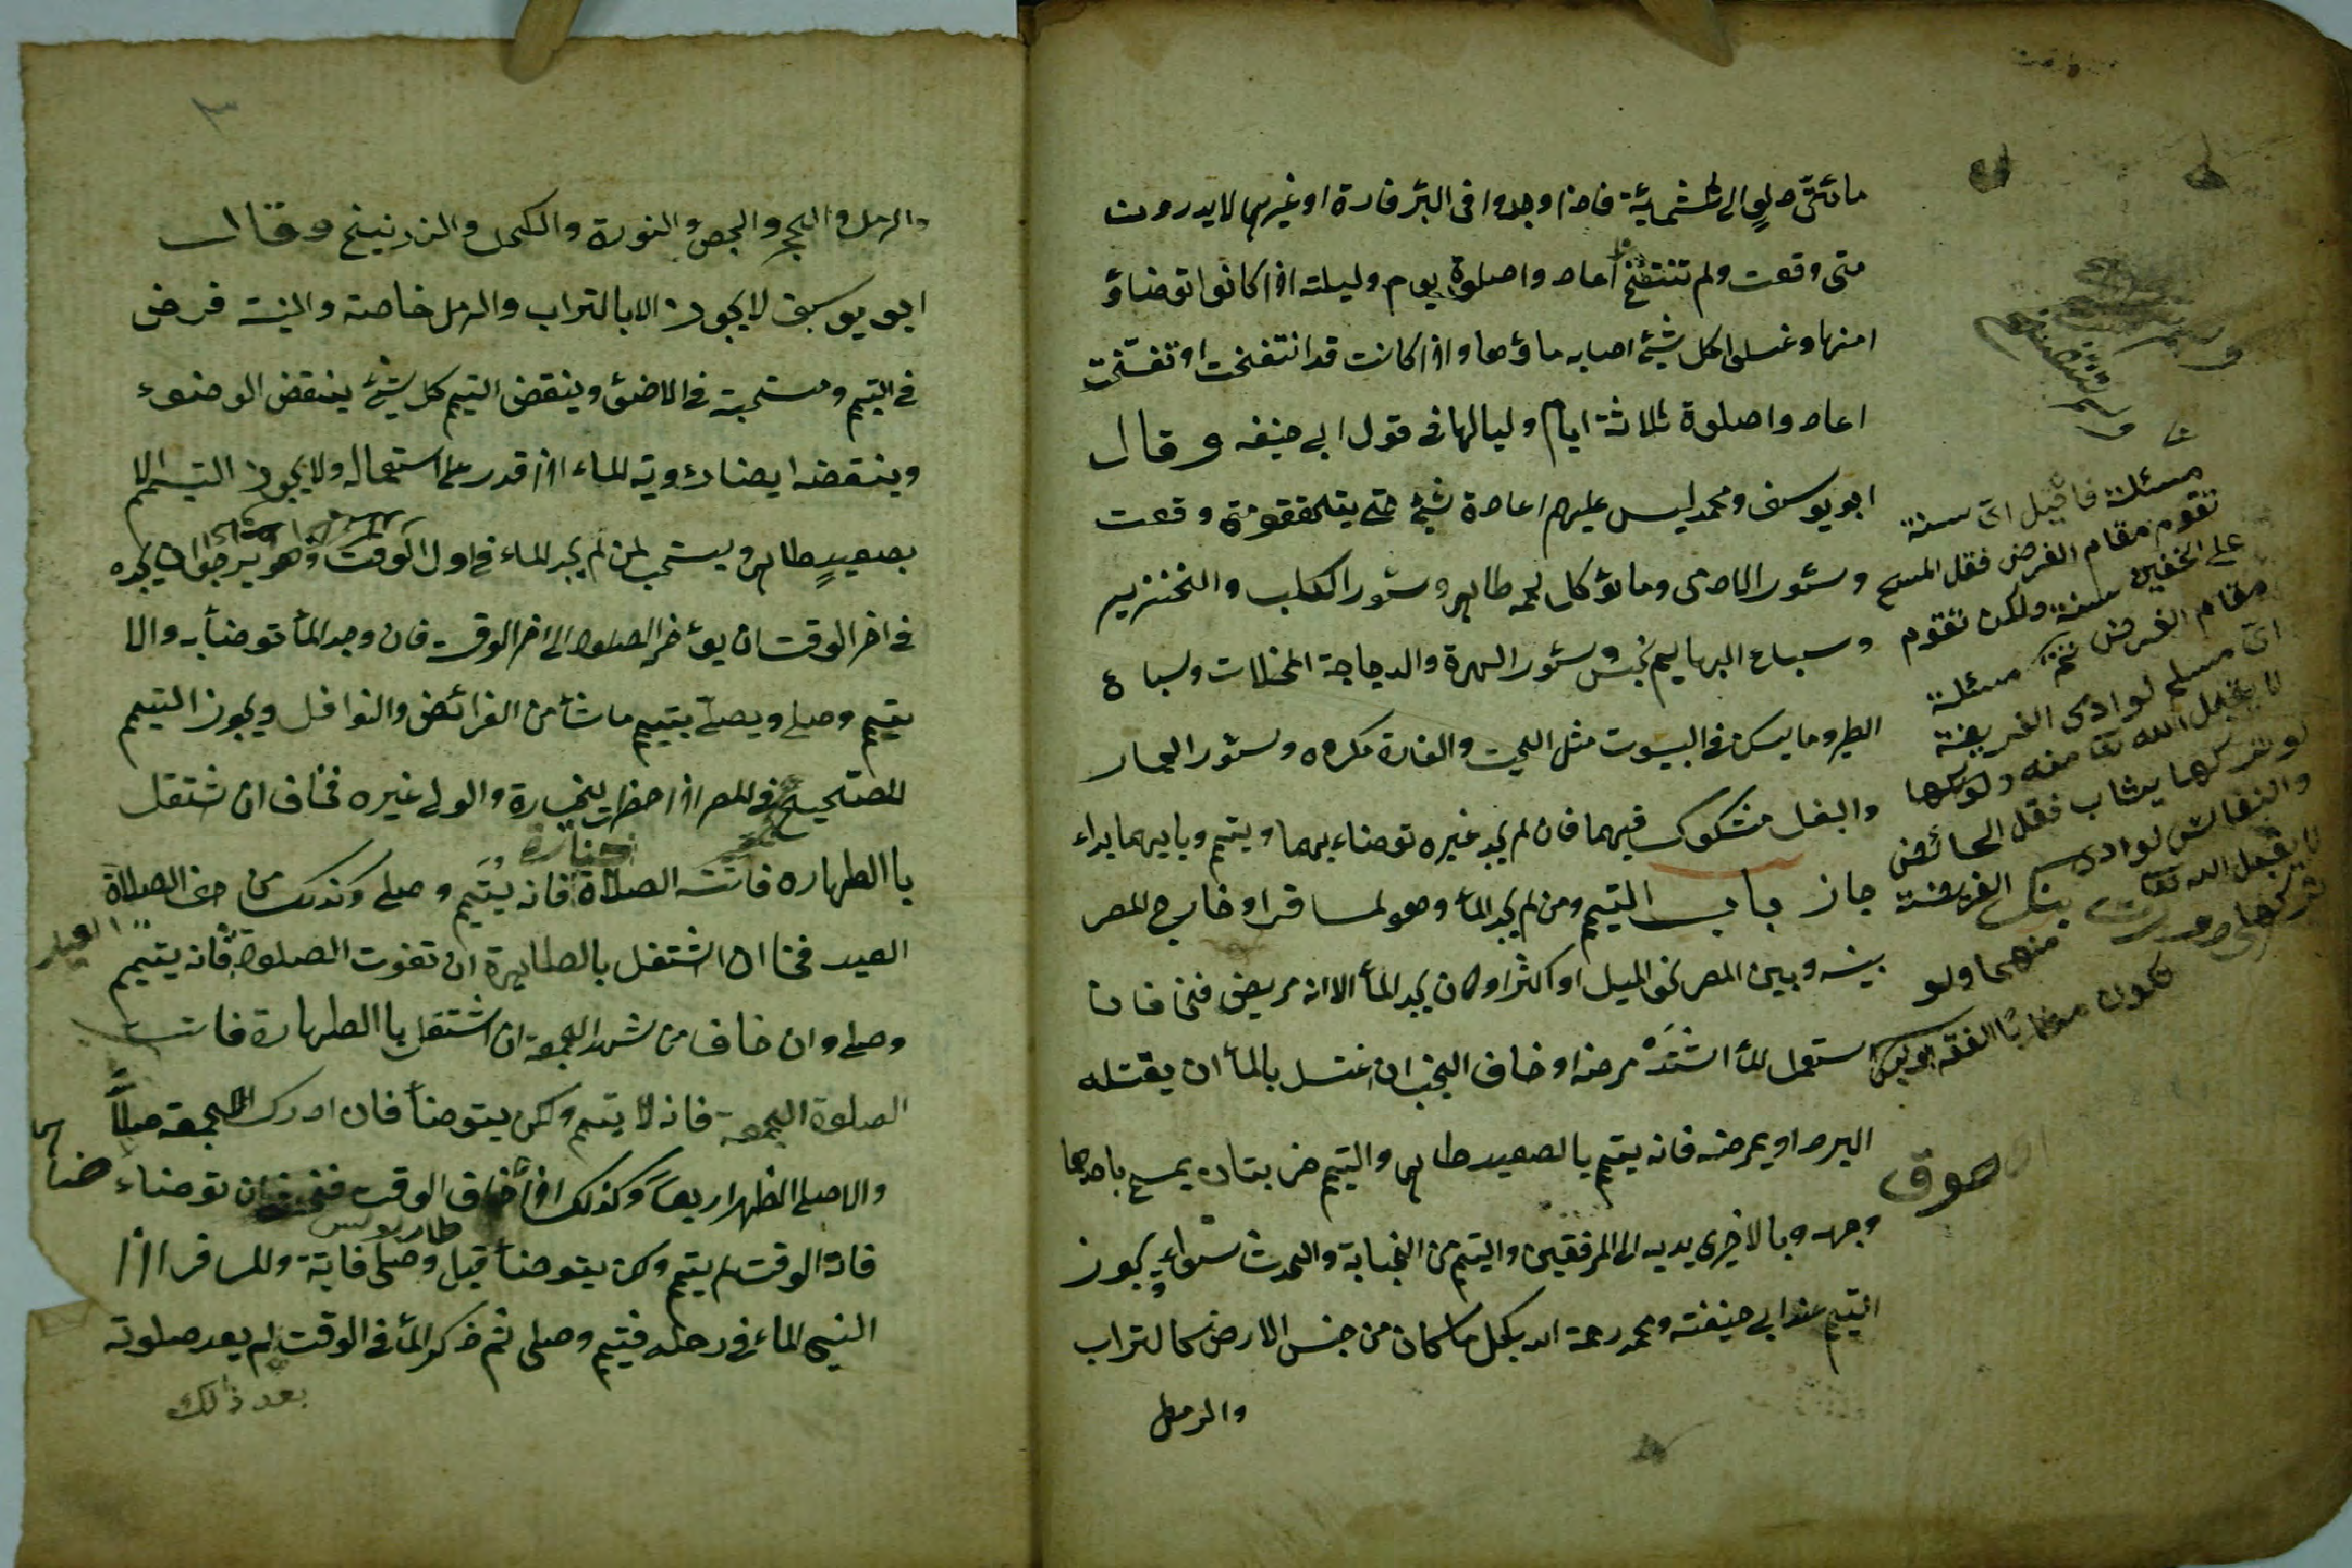 مائتى دلوٍ الى ثلثمائة فاذا وجدوا فى البئر فارة او غيرها لا يدرون
متى وقعت ولم تنتفخ اعادوا صلوة يوم وليلته اذا كانوا توضاؤ
امنها وغسلوا كل شئ اصابه ماؤها واذا كانت قد انتفخت او تفسخت
اعادوا صلوة ثلاثة ايام ولياليها فى قول ابى حنيفه وقال
ابو يوسف ومحمد ليس عليهم اعادة شئ حتى يتحققو متى وقعت
وسئور الادمى وما يؤكل لحمه طاهر وسئور الكلب والخنزير
وسباع البهايم نجس وسئور الهرة والدجاجة المخلات وسباع
الطير وما يسكن فى البيوت مثل الحية والفارة مكروه وسئور الحمار
والبغل مشكوك فيهما فان لم يجد غيره توضاء بهما ويتيم وبايهما بداء
جاز باب التيمم ومن لم يجد الماء وهو لمسافر او خارج المصر
بينه وبين المصر نحو الميل او اكثر او كان يجد الماء الا انه مريض فخاف ان
استعمل الماء اشتد مرضه او خاف الجنب ان اغتسل بالماء ان يقتله
البرد او يمرضه فانه يتيم بالصعيد طاهر والتيم ضربتان يمسح باحدهما
وجهه وبالاخرى يديه الى المرفقين والتيم من الجنابة والحدث سواء ويجوز
التيم عند ابى حنيفته ومحمد رحمة الله بكل ما كان من جنس الارض كالتراب
والرمل
مسئلة فاقيل اى سنة
تقوم مقام الفرض فقل المسح
على الخفين سنة ولكن تقوم
مقام الفرض تمة مسئلة
اى مسلم لو ادى الفريضة
لا يقبل الله تعا منه ولو تركها
لو تركها يثاب فقل الحائض
والنفائس لو ادى
الفريضة
لا يقبل الله تعا
منهما ولو
تركها
٣
والرمل والحجر والجص والنورة والكحل والزرنيخ وقال
ابو يوسف لا يجوز الا بالتراب والرمل خاصة والنية فرض
فى التيم ومستحبة فى الاضؤ وينقض التيم كل شئ ينقض الوضوء
وينقضه ايضا رؤية الماء اذا قدر على استعماله ولا يجوز التيمم الا
بصعيدٍ طاهر ويستحب لمن لم يجد الماء فى اول الوقت وهو يرجوا ان يجده
فى اخر الوقت ان يؤخر الصلوة الى اخر الوقت فان وجد الماء توضأ به والا
يتيم وصلى ويصلى بتييم ما شأ من الفرائض والنوافل ويجوز التيمم
للصحيح فى المصر اذا حضرت لجنازة والولى غيره فخاف ان شتغل
جنازة
باالطهاره فاتته الصلاة فانه يتيم وصلى وكذلك من حضر الصلاة
العيد
العيد فخا ان اشتغل بالطهارة ان تفوت الصلوة فانه يتيمم
وصلى وان خاف من شهد الجمعة ان اشتغل باالطهارة فاتت
الصلوة الجمعة فانه لا يتيم ولكن يتوضأ فان ادرك الجمعة صلا
والا صلى الظهر اربعا وكذلك اذا خاف الوقت فخشى ان توضاء
فات الوقت لم يتيم ولكن يتوضأ قيل وصلى فايتة وللسافر اذا
النيى الماء فى رحله فتيم وصلى ثم ذكر الماء فى الوقت لم يعد صلوته
بعد ذلك